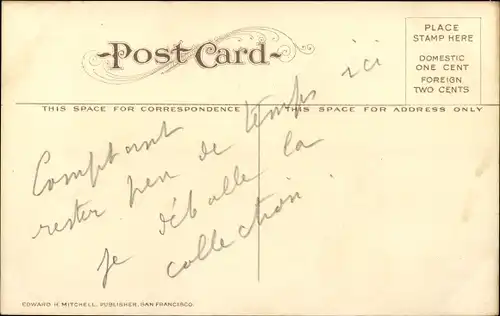 PLACE
STAMP HERE
DOMESTIC
ONE CENT
FOREIGN
TWO CENTS
Post Card
THIS SPACE FOR CORRESPONDENCE
THIS SPACE FOR ADDRESS ONLY
Comptant
rester peu de temps ici
je déballe la
collection.
EDWARD H. MITCHELL, PUBLISHER, SAN FRANCISCO.